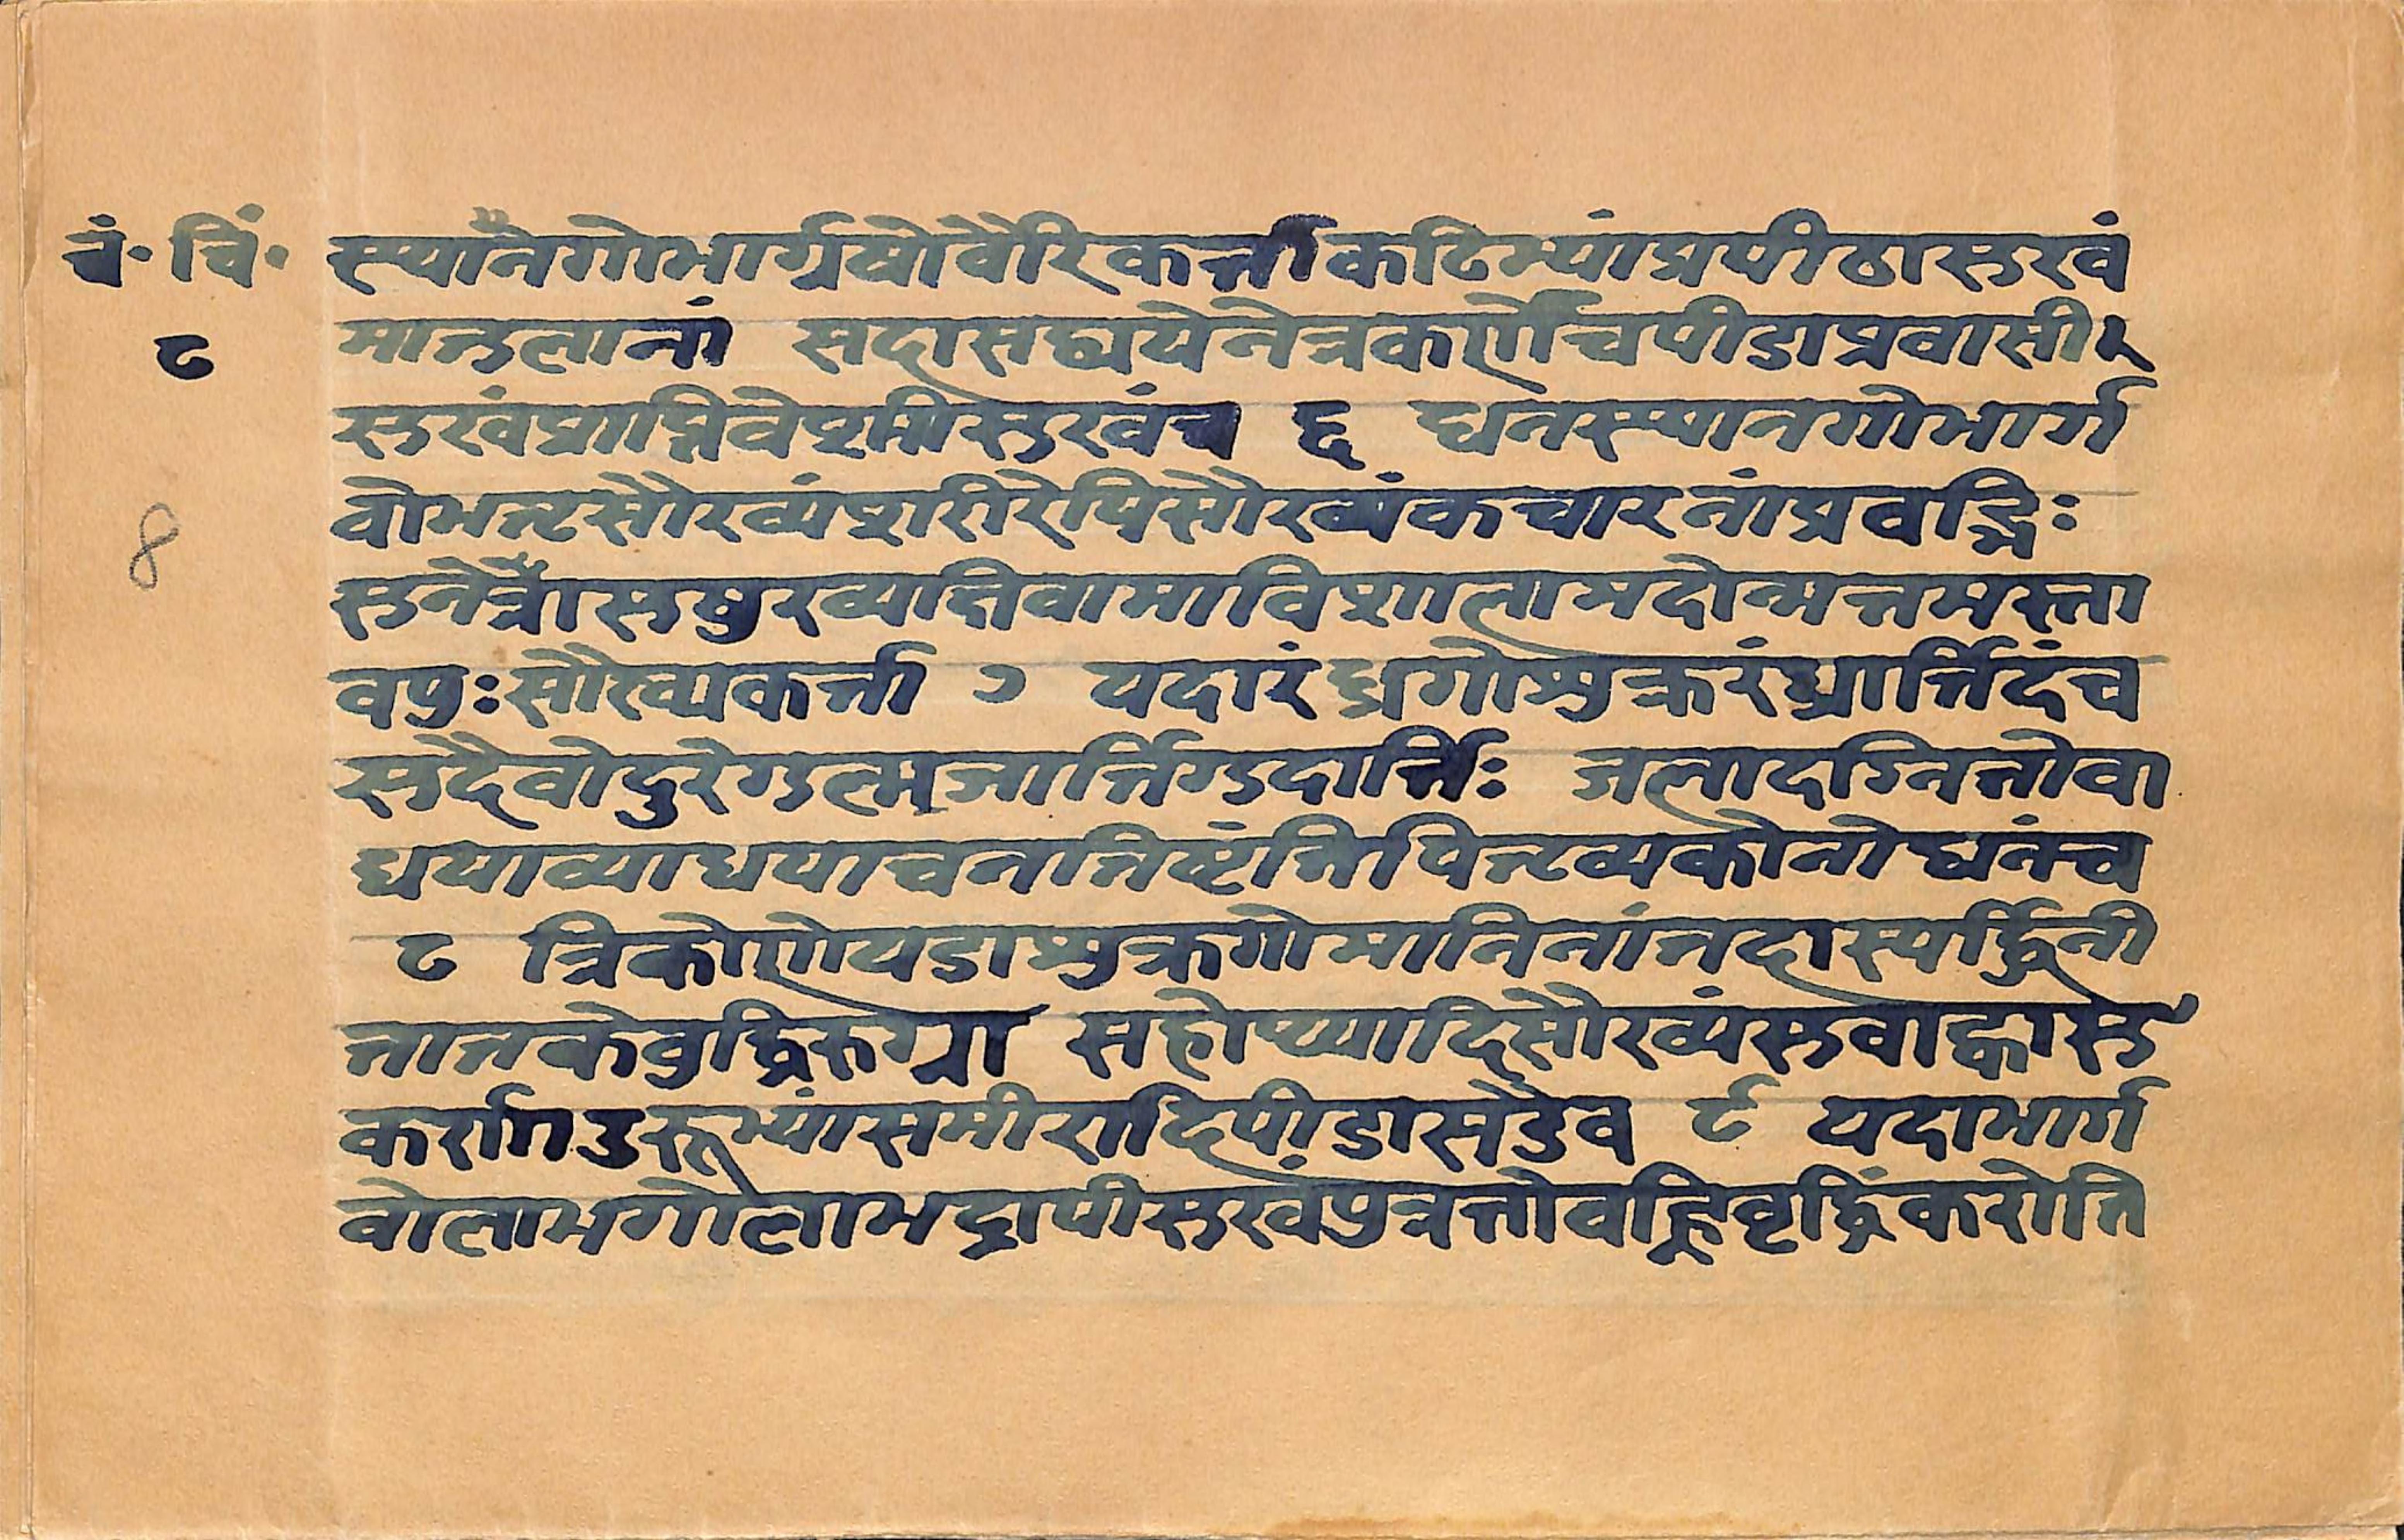 चं· चिं·
८
8
स्थानैगोभार्ग्गवोवैरिकर्त्ताकटिभ्यांप्रपीठासुखं
मातुलानां सदासद्ययेनेत्रकर्णौचपीडाप्रवासी
सुखंप्राप्तिवेश्मीसुखंच ६ धनस्थानगोभार्ग
वोभतृसौख्यंशरीरेपिसौख्यंकचारनांप्रवद्धिः
सुनेत्रौसुषुख्यातिवामाविशालामदोन्मत्तमस्ता
वपुःसौख्यकर्त्ता ७ यदारंध्रगोशुक्ररंध्रार्त्तिदंच
सदैवोदुरेगुल्मजार्त्तिगुदार्त्तिः जलादग्नितोवा
धयाव्याधयाचनातिष्टंतिपितृव्यकोनोधनंच
८ त्रिकोणेयडाशुक्रगोमानिनांतदास्यर्द्धिनी
तातकेवुद्धिरुग्रा सहोथ्यादिसौख्यंसुवाह्वासु
कर्राणउरूभ्यांसमीरादिपीडासडैव ९ यदाभार्ग
वोलाभगोलाभद्रापीसुखंपुत्रतोवह्निवृद्धिंकरोति